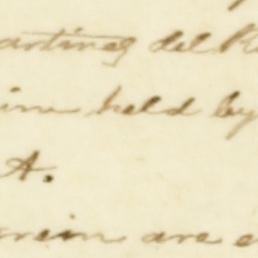 artinez del R
im held by
A.
rein are e